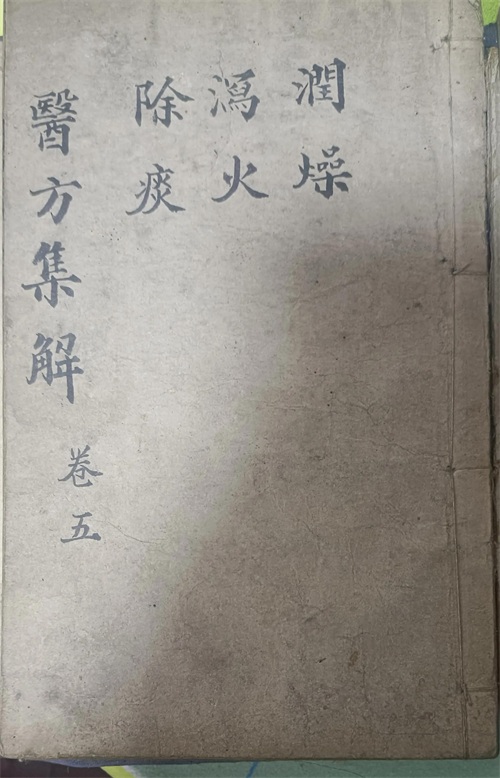 潤燥
瀉火
除痰
醫方集解
卷五